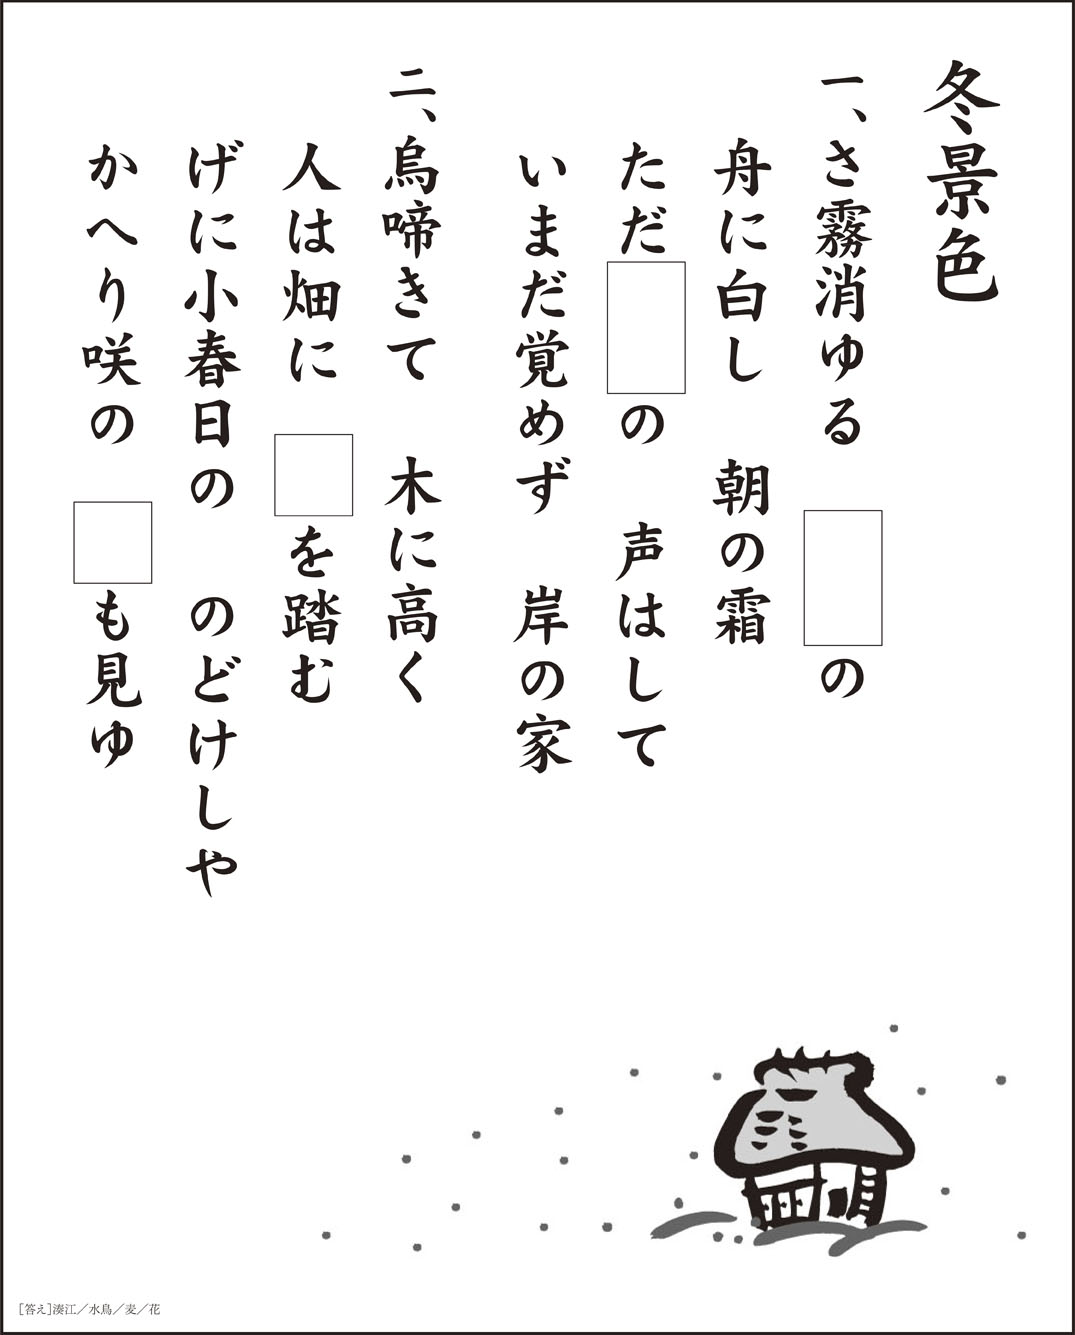 冬景色
一、さ霧消ゆる　□の
舟に白し　朝の霜
ただ□の　声はして
いまだ覚めず　岸の家
二、烏啼きて　木に高く
人は畑に　□を踏む
げに小春日の　のどけしや
かへり咲の　□も見ゆ
［答え］湊江／水鳥／麦／花